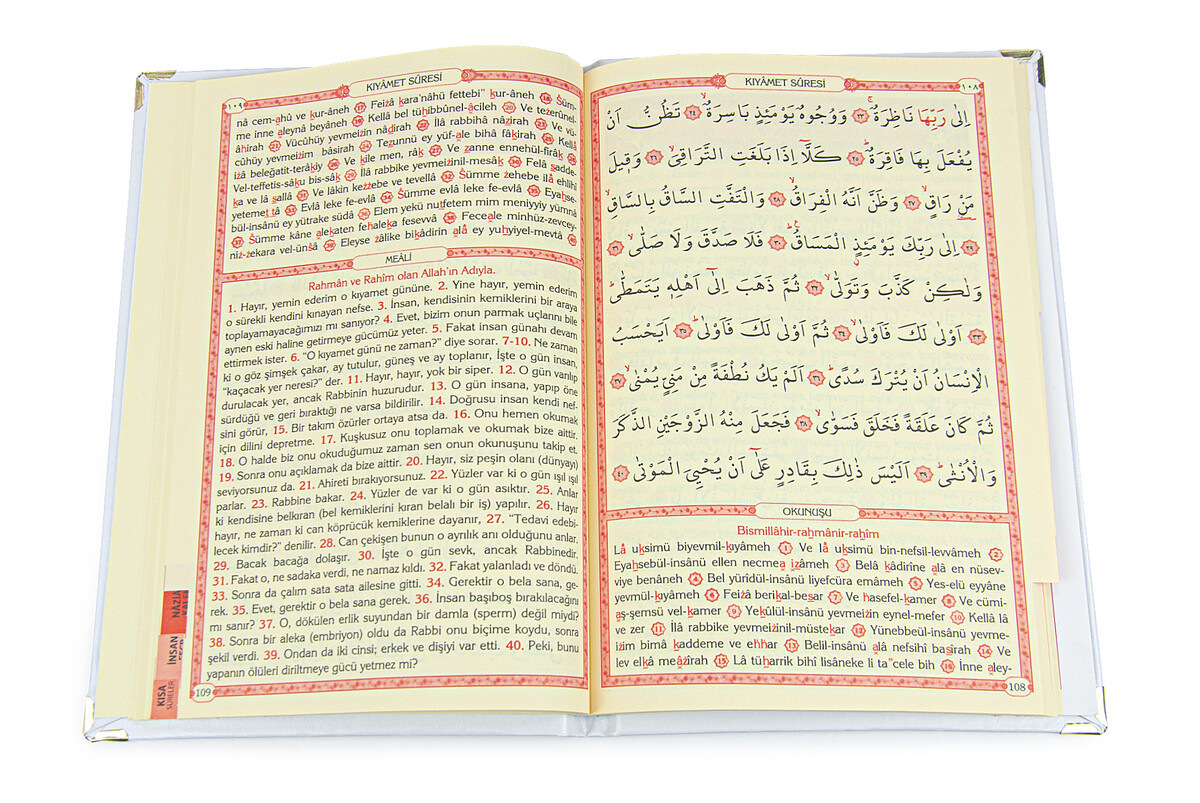 KIYÂMET SÛRESİ
١٠٨
اِلٰى رَبِّهَا نَاظِرَةٌۚ ٢٣ وَوُجُوهٌ يَوْمَئِذٍ بَاسِرَةٌۙ ٢٤ تَظُنُّ اَنْ
يُفْعَلَ بِهَا فَاقِرَةٌۜ ٢٥ كَلَّٓا اِذَا بَلَغَتِ التَّرَاقِيَۙ ٢٦ وَقٖيلَ
مَنْ رَاقٍۙ ٢٧ وَظَنَّ اَنَّهُ الْفِرَاقُۙ ٢٨ وَالْتَفَّتِ السَّاقُ بِالسَّاقِۙ
٢٩ اِلٰى رَبِّكَ يَوْمَئِذٍ الْمَسَاقُۜ ٣٠ فَلَا صَدَّقَ وَلَا صَلّٰىۙ ٣١
وَلٰكِنْ كَذَّبَ وَتَوَلّٰىۙ ٣٢ ثُمَّ ذَهَبَ اِلٰٓى اَهْلِهٖ يَتَمَطّٰىۜ
٣٣ اَوْلٰى لَكَ فَاَوْلٰىۙ ٣٤ ثُمَّ اَوْلٰى لَكَ فَاَوْلٰىۜ ٣٥ اَيَحْسَبُ
الْاِنْسَانُ اَنْ يُتْرَكَ سُدًىۜ ٣٦ اَلَمْ يَكُ نُطْفَةً مِنْ مَنِيٍّ يُمْنٰىۙ ٣٧
ثُمَّ كَانَ عَلَقَةً فَخَلَقَ فَسَوّٰىۙ ٣٨ فَجَعَلَ مِنْهُ الزَّوْجَيْنِ الذَّكَرَ
وَالْاُنْثٰىۜ ٣٩ اَلَيْسَ ذٰلِكَ بِقَادِرٍ عَلٰٓى اَنْ يُحْيِيَ الْمَوْتٰى ٤٠
OKUNUŞU
Bismillâhir-rahmânir-rahîm
Lâ uksimü biyevmil-kıyâmeh 1 Ve lâ uksimü bin-nefsil-levvâmeh 2
Eyahsebül-insânü ellen necmea izâmeh 3 Belâ kâdirîne alâ en nüsev-
viye benâneh 4 Bel yürîdül-insânü liyefcüra emâmeh 5 Yes-elü eyyâne
yevmül-kıyâmeh 6 Feizâ berikal-besar 7 Ve hasefel-kamer 8 Ve cümi-
aş-şemsü vel-kamer 9 Yekûlül-insânü yevmeizin eynel-mefer 10 Kellâ lâ
ve zer 11 İlâ rabbike yevmeizinil-müstekar 12 Yünebbeül-insânü yevme-
izim bimâ kaddeme ve ehhar 13 Belil-insânü alâ nefsihî basîrah 14 Ve
lev elkâ meâzîrah 15 Lâ tüharrik bihî lisâneke li ta"cele bih 16 İnne aley-
108
KIYÂMET SÛRESİ
١٠٩
nâ cem-ahû ve kur-âneh 17 Feizâ kara'nâhü fettebi" kur-âneh 18 Süm-
me inne aleynâ beyâneh 19 Kellâ bel tühibbûnel-âcileh 20 Ve tezerûnel-
âhirah 21 Vücûhüy yevmeizin nâdırah 22 İlâ rabbihâ nâzirah 23 Ve vü-
cûhüy yevmeizim bâsirah 24 Tezunnü ey yüf-ale bihâ fâkirah 25 Kellâ
izâ beleğatit-terâkiy 26 Ve kîle men, râk 27 Ve zanne ennehül-firâk 28
Vel-teffetis-sâku bis-sâk 29 İlâ rabbike yevmeizinil-mesâk 30 Felâ sadde-
ka ve lâ sallâ 31 Ve lâkin kezzebe ve tevellâ 32 Sümme zehebe ilâ ehlihî
yetemet tâ 33 Evlâ leke fe-evlâ 34 Sümme evlâ leke fe-evlâ 35 Eyahse-
bül-insânü ey yütrake südâ 36 Elem yekü nutfetem mim meniyyiy yümnâ
37 Sümme kâne alekaten fehaleka fesevvâ 38 Feceale minhüz-zevcey-
niz-zekara vel-ünsâ 39 Eleyse zâlike bikâdirin alâ ey yuhyiyel-mevtâ 40
MEÂLİ
Rahmân ve Rahîm olan Allah'ın Adıyla.
1. Hayır, yemin ederim o kıyamet gününe. 2. Yine hayır, yemin ederim
o sürekli kendini kınayan nefse. 3. İnsan, kendisinin kemiklerini bir araya
toplayamayacağımızı mı sanıyor? 4. Evet, bizim onun parmak uçlarını bile
aynen eski haline getirmeye gücümüz yeter. 5. Fakat insan günahı devam
ettirmek ister. 6. “O kıyamet günü ne zaman?” diye sorar. 7-10. Ne zaman
ki o göz şimşek çakar, ay tutulur, güneş ve ay toplanır, İşte o gün insan,
“kaçacak yer neresi?” der. 11. Hayır, hayır, yok bir siper. 12. O gün vanlıp
durulacak yer, ancak Rabbinin huzurudur. 13. O gün insana, yapıp öne
sürdüğü ve geri bıraktığı ne varsa bildirilir. 14. Doğrusu insan kendi nef-
sini görür, 15. Bir takım özürler ortaya atsa da. 16. Onu hemen okumak
için dilini depretme. 17. Kuşkusuz onu toplamak ve okumak bize aittir.
18. O halde biz onu okuduğumuz zaman sen onun okunuşunu takip et.
19. Sonra onu açıklamak da bize aittir. 20. Hayır, siz peşin olanı (dünyayı)
seviyorsunuz da. 21. Ahireti bırakıyorsunuz. 22. Yüzler var ki o gün ışıl ışıl
parlar. 23. Rabbine bakar. 24. Yüzler de var ki o gün asıktır. 25. Anlar
ki kendisine belkıran (bel kemiklerini kıran belalı bir iş) yapılır. 26. Hayır
hayır, ne zaman ki can köprücük kemiklerine dayanır, 27. “Tedavi edebi-
lecek kimdir?” denilir. 28. Can çekişen bunun o ayrılık anı olduğunu anlar.
29. Bacak bacağa dolaşır. 30. İşte o gün sevk, ancak Rabbinedir.
31. Fakat o, ne sadaka verdi, ne namaz kıldı. 32. Fakat yalanladı ve döndü.
33. Sonra da çalım sata sata ailesine gitti. 34. Gerektir o bela sana, ge-
rek. 35. Evet, gerektir o bela sana gerek. 36. İnsan başıboş bırakılacağını
mı sanır? 37. O, dökülen erlik suyundan bir damla (sperm) değil miydi?
38. Sonra bir aleka (embriyon) oldu da Rabbi onu biçime koydu, sonra
şekil verdi. 39. Ondan da iki cinsi; erkek ve dişiyi var etti. 40. Peki, bunu
yapanın ölüleri diriltmeye gücü yetmez mi?
109
NÂZİA
İNSAN
KISA
SÛRELER